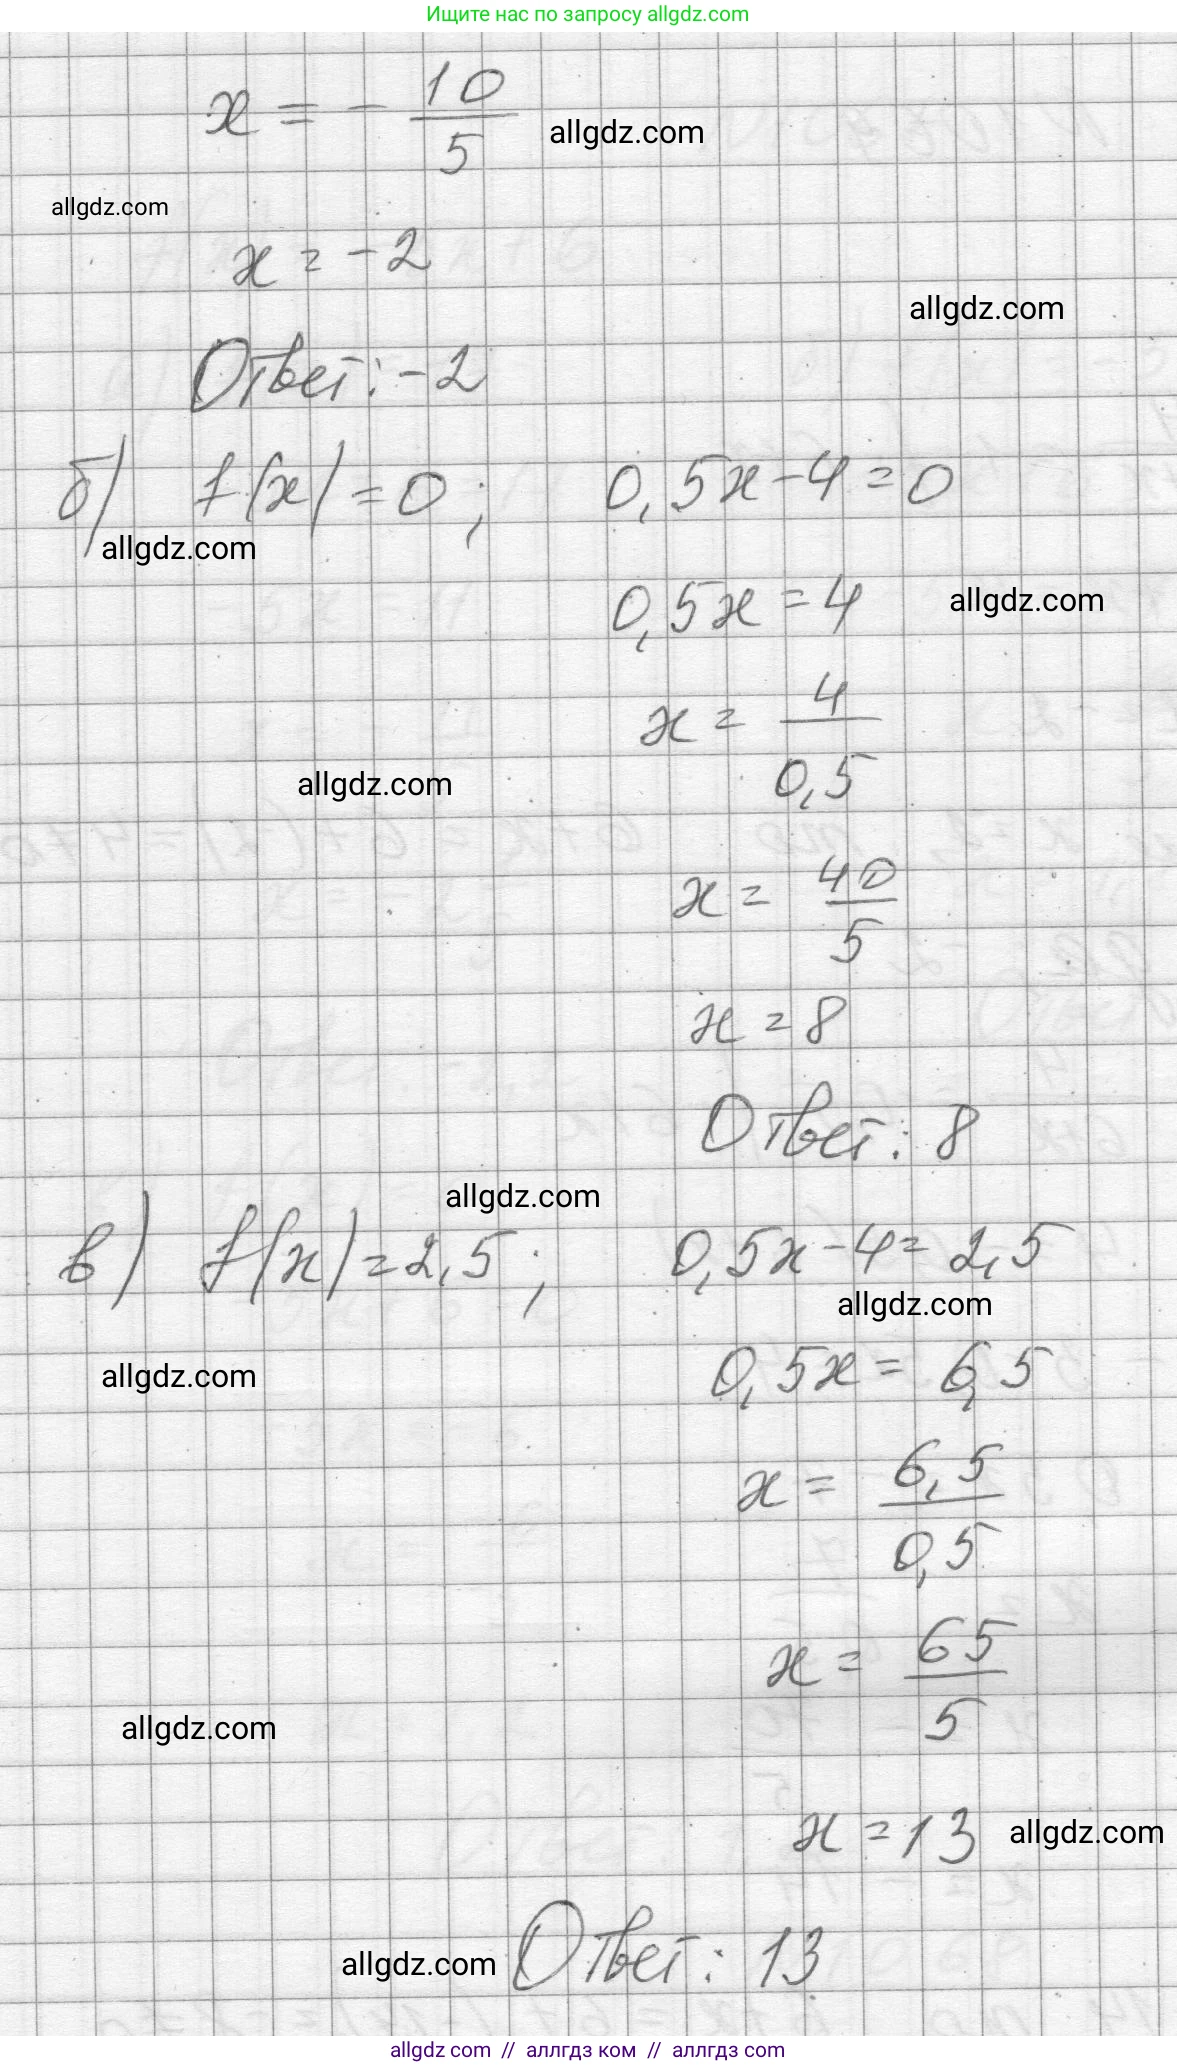 Ищите нас по запросу allgdz.com
x = - 10/5
allgdz.com
allgdz.com
x = -2
allgdz.com
Ответ: -2
б) f(x) = 0; 0,5x - 4 = 0
allgdz.com
0,5x = 4
allgdz.com
x = 4/0,5
allgdz.com
x = 40/5
x = 8
Ответ: 8
allgdz.com
в) f(x) = 2,5; 0,5x - 4 = 2,5
allgdz.com
allgdz.com
0,5x = 6,5
x = 6,5/0,5
x = 65/5
allgdz.com
x = 13
allgdz.com
allgdz.com
Ответ: 13
allgdz com // аллгдз ком // аллгдз com